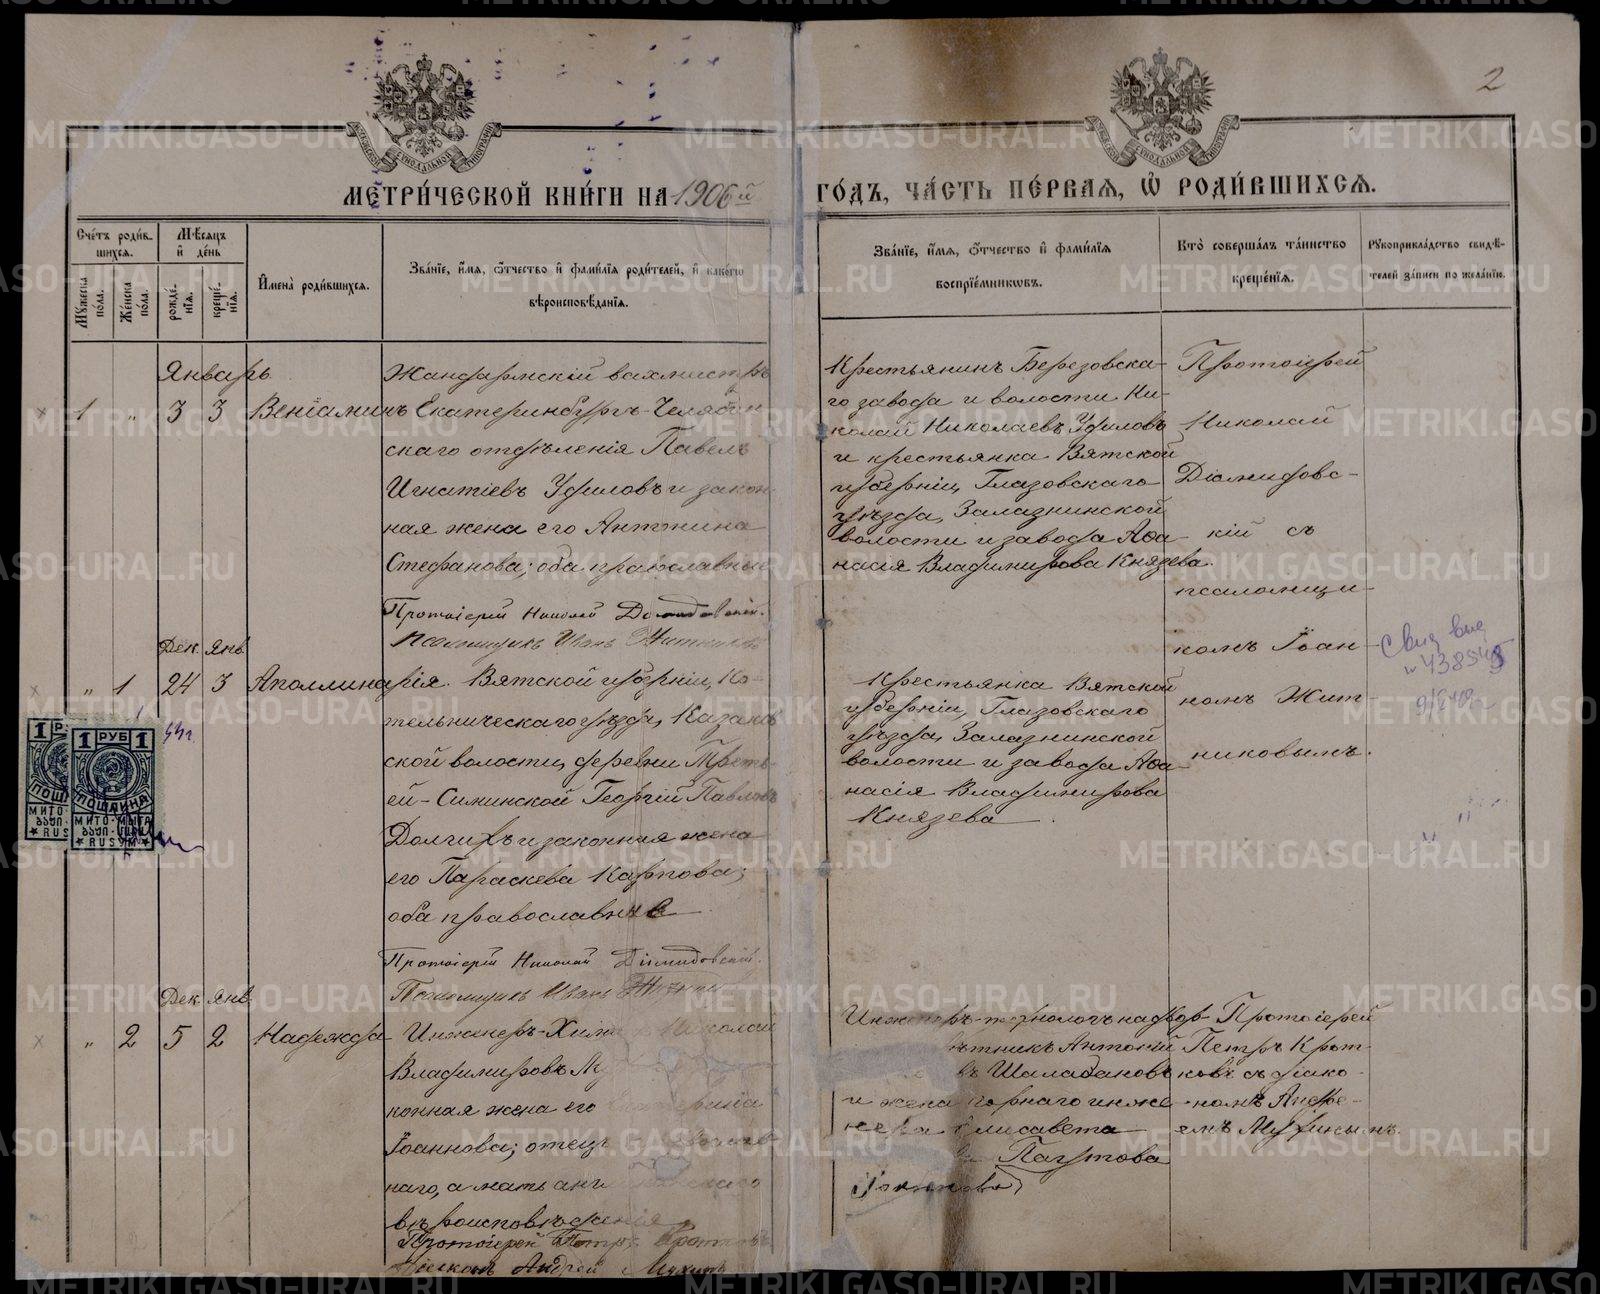 2
МЕТРИ́ЧЕСКОЙ КНИ́ГИ НА 1906й ГО́ДЪ, ЧА́СТЬ ПЕ́РВАЯ, Ѽ РОДИ́ВШИХСЯ.
Сче́тъ роди́вшихся.
Мꙋ́жеска по́ла.
Же́нска по́ла.
Мѣ́сяцъ и҆ де́нь
рожде́нїѧ.
креще́нїѧ.
И҆мена̀ роди́вшихсѧ.
Зва́нїе, и҆́мѧ, ѻ҆́тчество и҆ фами́лїѧ роди́телей, и҆ како́гѡ вѣроисповѣ́данїѧ.
Зва́нїе, и҆́мѧ, ѻ҆́тчество и҆ фами́лїѧ воспрїе́мникѡвъ.
Кто̀ соверша́лъ та́инство креще́нїѧ.
Рꙋкоприкла́дство свидѣ́телей за́писи по жела́нїю.
Январь
1 " 3 3 Веніаминъ
Жандармскій вахмистръ
Екатеринбургъ-Челябин
скаго отдѣленія Павелъ
Игнатіевъ Удиловъ и закон
ная жена его Антонина
Стефанова; оба православные
Протоіерей Николай Діомидовскій.
Псаломщикъ Иванъ Житниковъ
Крестьянинъ Березовска-
го завода и волости Ни-
колай Николаевъ Удиловъ
и крестьянка Вятской
губерніи, Глазовскаго
уѣзда, Залазнинской
волости и завода Афа
насія Владимирова Князева.
Протоіерей
Николай
Діомидовс-
кій съ
псаломщи-
комъ Іоан-
номъ Жит-
никовымъ.
Дек. Янв.
" 1 24 3 Аполлинарія.
Вятской губерніи, Ко-
тельническаго уѣзда, Казанс
ской волости, деревни Треть
ей-Симинской Георгій Павловъ
Долгихъ и законная жена
его Параскева Карпова;
оба православные
Протоіерей Николай Діомидовскій.
Псаломщикъ Иванъ
Крестьянка Вятской
губерніи, Глазовскаго
уѣзда, Залазнинской
волости и завода Афа
насія Владимирова
Князева.
1 РУБ 1
ПОШЛИНА
Дек. Янв.
" 2 5 2 Надежда
Инженеръ-Хими Николай
Владимировъ
конная жена его
Іоаннова; отецъ
наго, а мать
вѣроисповѣданія
Протоіерей Петръ Кротковъ
Діаконъ Андрей Мухинъ
технологъ надвор
ѣтникъ Антоній
Шалабановъ
и жена горнаго инже
нера Елисавета
Пагутова
Протоіерей
Петръ Крот-
ковъ съ діако-
номъ Андре-
емъ Мухинымъ.
METRIKI.GASO-URAL.RU